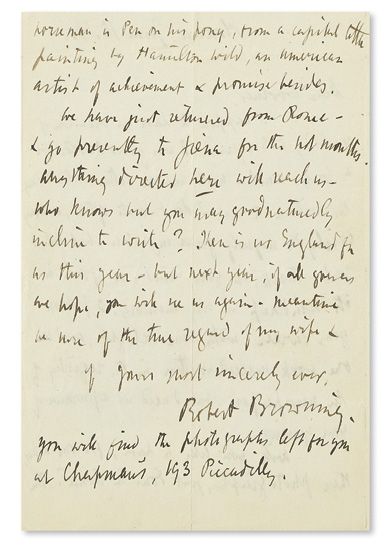 horseman is Pen on his pony, from a capital little
painting by Hamilton Wild, an American
artist of achievement & promise besides.
We have just returned from Rome -
& go presently to Siena for the hot months.
Anything directed here will reach us -
who knows but you may goodnaturedly
incline to write? There is no England for
us this year - but next year, if all goes as
we hope, you will see us again - meantime
be sure of the true regard of my wife &
of yours most sincerely ever,
Robert Browning.
You will find the photographs left for you
at Chapman's, 193 Piccadilly.